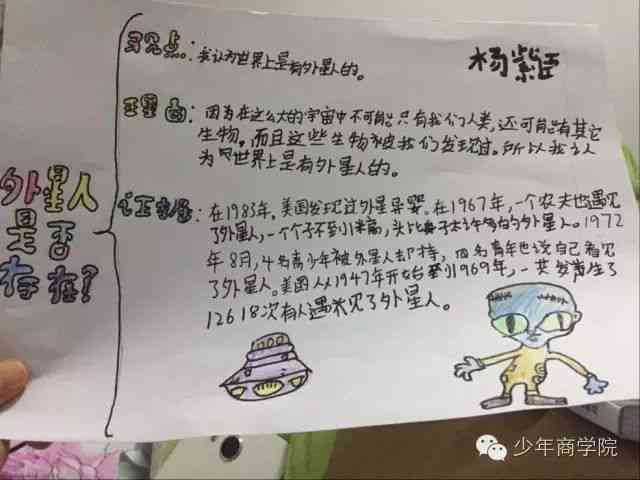 杨紫
外星人
是否
存在?
观点:我认为世界上是有外星人的。
理由:因为在这么大的宇宙中不可能只有我们人类,还可能有其它
生物,而且这些生物被我们发现过。所以我认
为世界上是有外星人的。
证据:在1983年,美国发现过外星异婴。在1967年,一个农夫也遇见
了外星人,一个个子不到1米高,头
外星人。1972
年8月,4名青少年被外星人劫持,四名青年也说自己看见
了外星人。美国从1947年开始到1969年,一共发生了
12618次有人遇见了外星人。
少年商学院